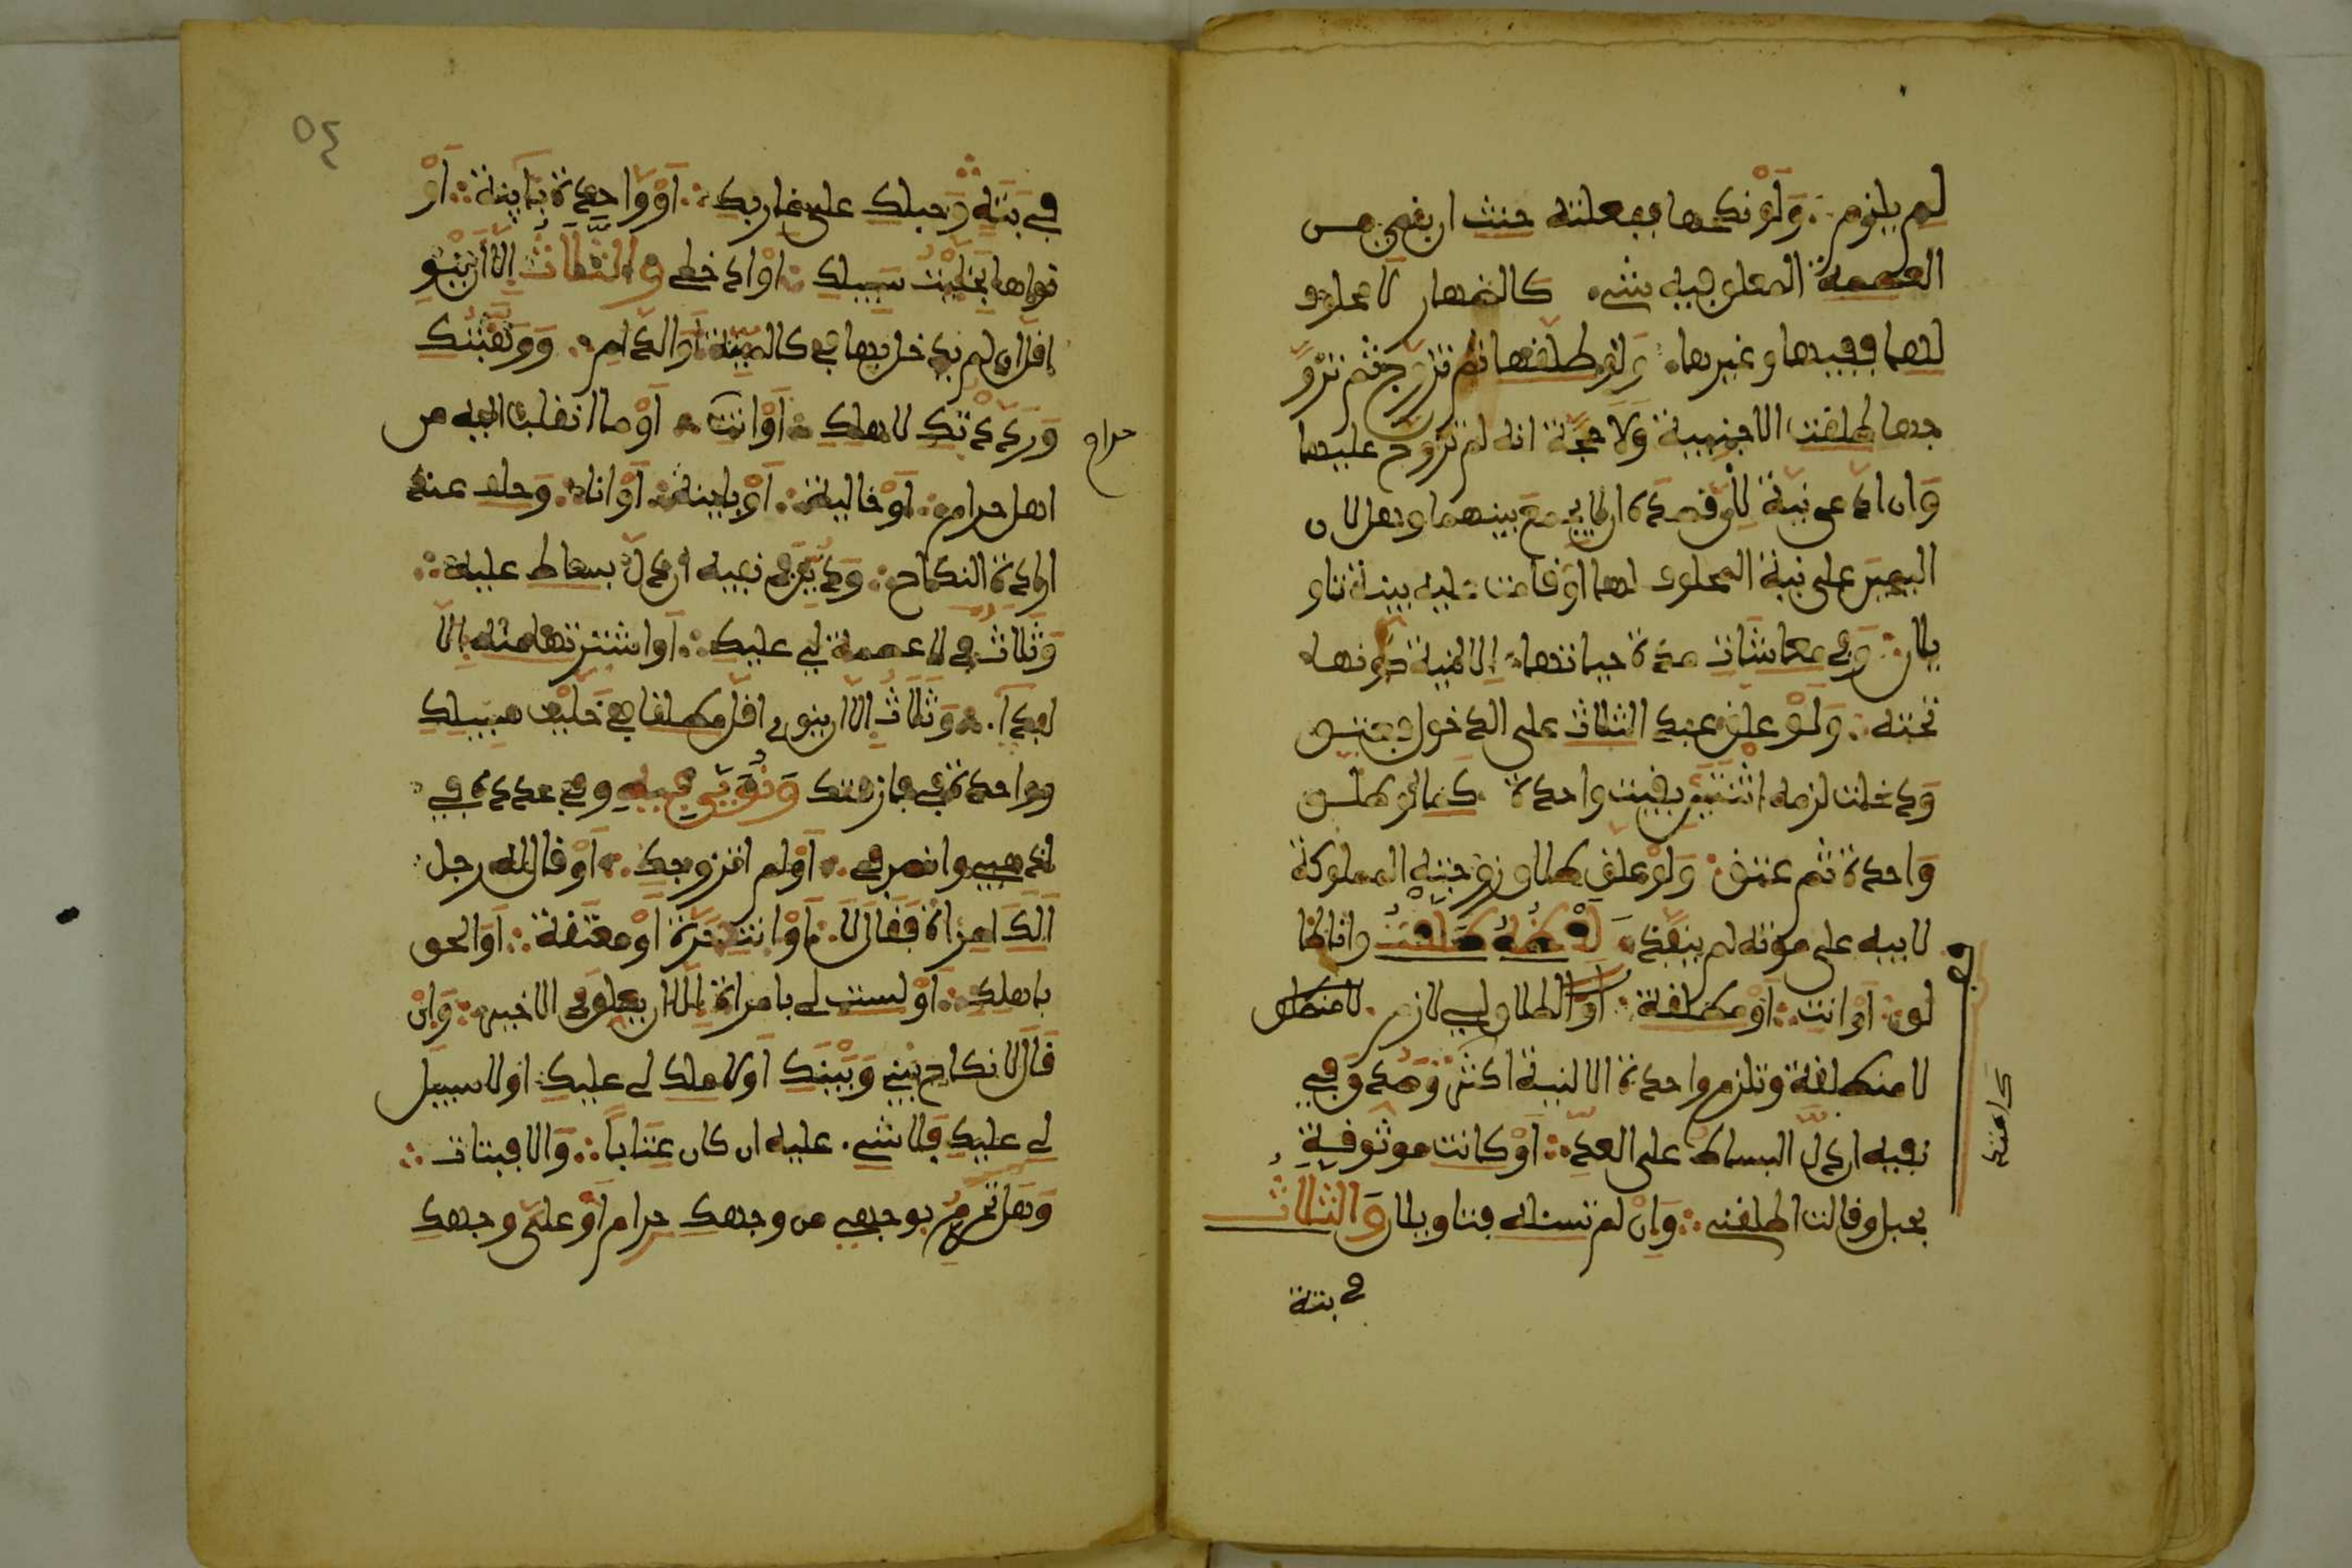 لم يلزم ولو نكحها ففعلته حنث ان بقي من
العصمة المعلق فيه شيء كالظهار لا محلوف
لها ففيها وغيرها ولو طلقها ثم تزوج ثم تزو
جها طلقت الاجنبية ولا حجة انه لم يتزوج عليها
وان ادعى نية لان قصده ان لا يجمع بينهما وهل لان
اليمين على نية المحلوف لها او قامت عليه بينة تاو
يلان وفي ما عاشت مدة حياتها الا لنية كونها
تحته ولو علق عبد الثلاث على الدخول فعتق
ودخلت لزمه اثنتين بقيت واحدة كما لو طلق
واحدة ثم عتق ولو علق طلاق زوجته المملوكة
لابيه على موته لم ينفذ لفظه طلقت وانا طا
لق او انت او مطلقة او الطلاق لي لازم لا منطلق
لا منطلقة وتلزم واحدة الا لنية اكثر وصدق في
نفيه ان دل البساط على العد او كانت موثوقة
فقيل وقالت اطلقني وان لم تسئله فتاويلان والثلاث
في بتة
٥٤
في بتة وحبلك على غاربك او واحدة باينة او
نواها بخليت سبيلك او ادخلي والثلاث الا ان ينوي
اقل ان لم يدخل بها في كالميتة والدم ووهبتك
ورددتك لاهلك او انت او ما انقلب اليه من
حرام
اهل حرام او خالية او باينة او انا وحلف عند
ارادة النكاح ودين في نفيه ان دل بساط عليه
وثلاث في لا عصمة لي عليك او اشترتها منه الا
لفداء وثلاث الا ان ينوي اقل مطلقا في خليت سبيلك
وواحدة في فارقتك ونوي فيه وفي عدده في
اذهبي وانصرفي او لم اتزوجك او قال له رجل
الك امراة فقال لا او انت حرة او معتقة او الحقي
باهلك او لست لي بامراة الا ان يعلق في الاخير وان
قال لا نكاح بيني وبينك او لا ملك لي عليك او لا سبيل
لي عليك فلا شيء عليه ان كان عتابا والا فبتات
وهل تحرم بوجهي من وجهك حرام او على وجهك